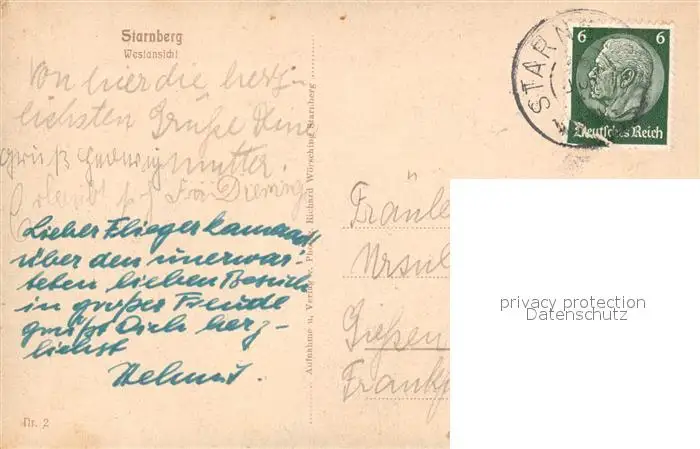 Starnberg
Westansicht
Von hier die herz-
lichsten Grüße Deine
Mutter.
Gruß Hedwig
Lieber Fliegerkamerad!
über den unerwar-
teten lieben Besuch
in großer Freude
grüßt Dich herz-
lichst
Helmut.
Nr. 2
Aufnahme u. Verlag v. Richard Wörsching Starnberg
STARN
6 6
Deutsches Reich
Fräule
Ursul
Gießen
Frankf
privacy protection
Datenschutz